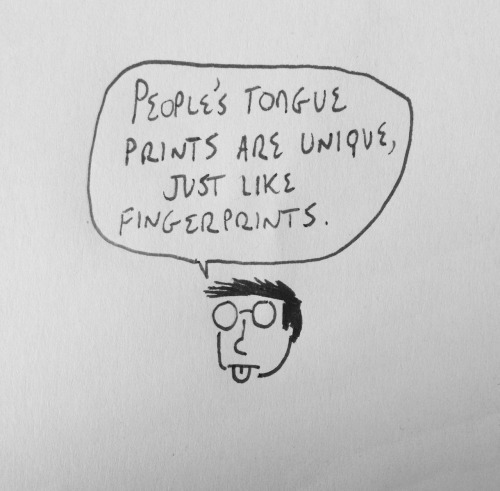 PEOPLE'S TONGUE
PRINTS ARE UNIQUE,
JUST LIKE
FINGERPRINTS.